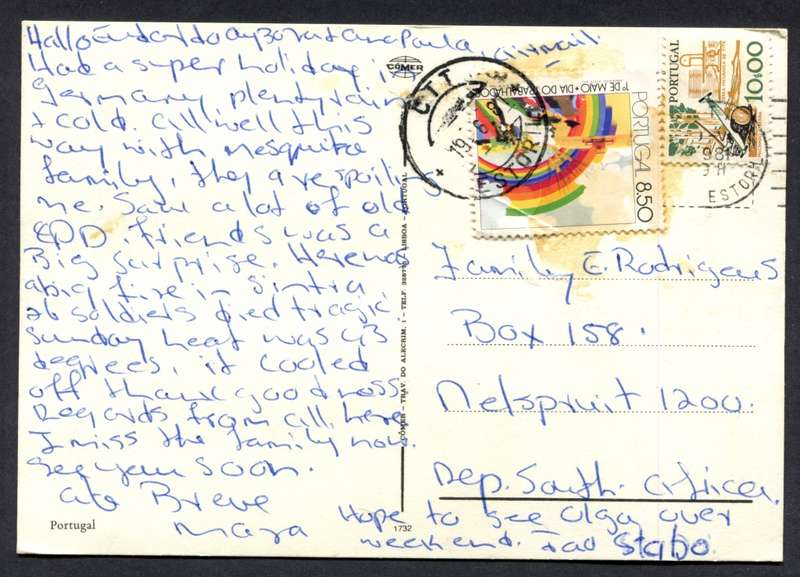 Hallo
Had a super holiday in
Germany plenty rain
+ cold. all well this
way with mesquita
family, they are spoiling
me. Saw a lot of old
friends was a
Big surprise. Here was
a big fire in Sintra
26 soldiers died tragic.
Sunday heat was 43
degrees, it cooled
off thank goodness
Regards from all here
I miss the family now.
See you soon.
ate Breve
Mara
airmail.
COMER
CTT
ESTORIL
1º DE MAIO • DIA DO TRABALHADOR
PORTUGAL 8.50
PORTUGAL
10$00
ESTORIL
Family E. Rodrigues
Box 158.
Nelspruit 1200.
Rep. South Africa.
Hope to see Olga over
weekend.
COMER - TRAV. DO ALECRIM, 1 - TELF. - LISBOA - PORTUGAL
Portugal
1732